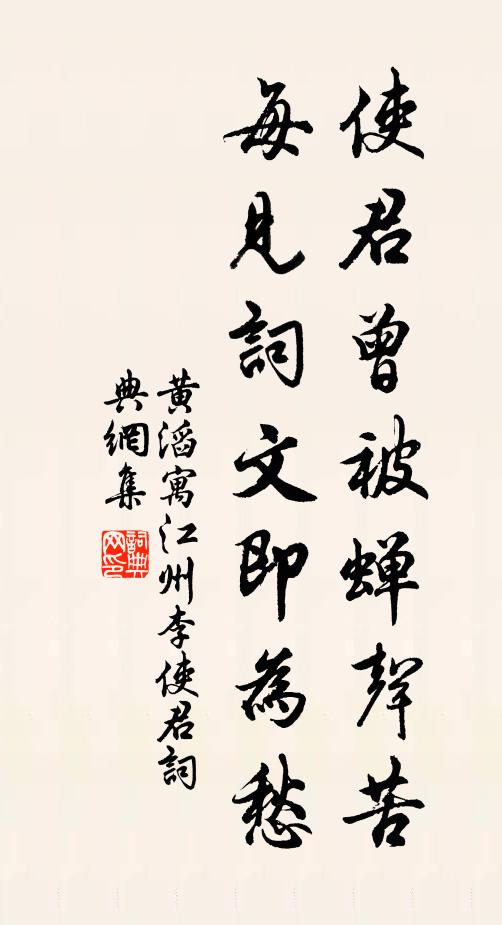 使君曾被蟬聲苦
每見詞文即為愁
黃滔寓江州李使君詞
典網集
詞典網印